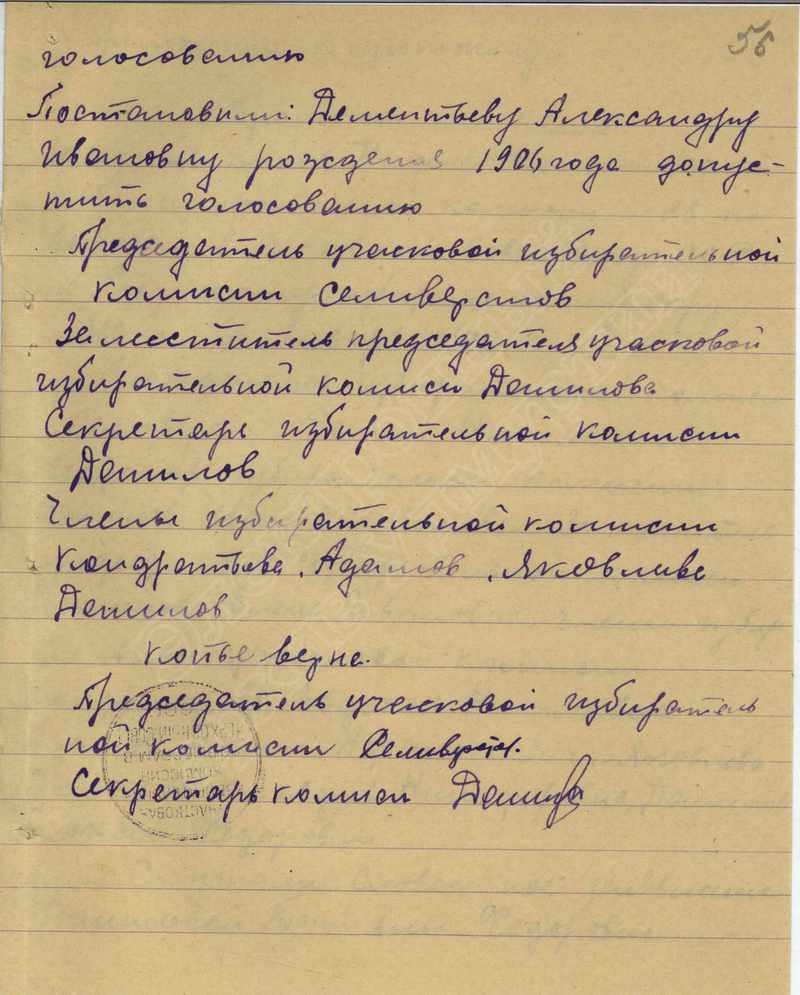 56
голосованию
Постановили: Дементьеву Александру
Ивановну рождения 1906 года допус-
тить голосованию
Председатель учасковой избирательной
комисии Селиверстов
Заместитель председателя учасковой
избирательной комиси Данилова
Секретарь избирательной комисии
Данилов
Члены избирательной комисии
Кондратьева, Адамов, Яковлива
Данилов
копье верна.
Председатель учасковой избиратель
ной комисии Селиверстов.
Секретарь комиси Данилов